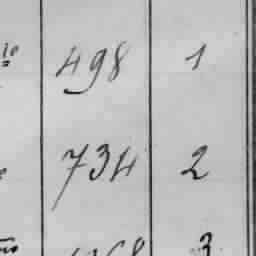 498 1
734 2
3